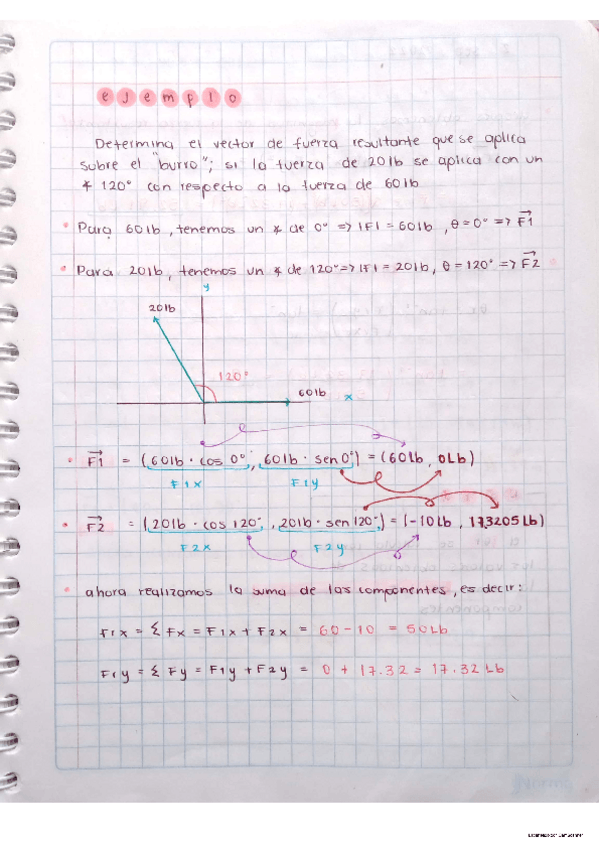 ejemplo
Determina el vector de fuerza resultante que se aplica
sobre el "burro"; si la fuerza de 20lb se aplica con un
∡ 120° con respecto a la fuerza de 60lb
• Para 60lb, tenemos un ∡ de 0° => |F| = 60lb, θ = 0° => F⃗1
• Para 20lb, tenemos un ∡ de 120° => |F| = 20lb, θ = 120° => F⃗2
y
20lb
120°
60lb
x
• F⃗1 = (60lb · cos 0°, 60lb · sen 0°) = (60Lb, 0Lb)
F1x F1y
• F⃗2 = (20lb · cos 120°, 20lb · sen 120°) = (-10Lb, 17.3205Lb)
F2x F2y
• ahora realizamos la suma de las componentes, es decir:
Frx = Σ Fx = F1x + F2x = 60 - 10 = 50Lb
Fry = Σ Fy = F1y + F2y = 0 + 17.32 = 17.32 Lb